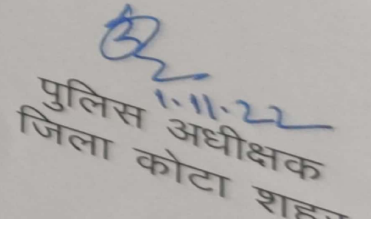 1.11.22
पुलिस अधीक्षक
जिला कोटा शहर